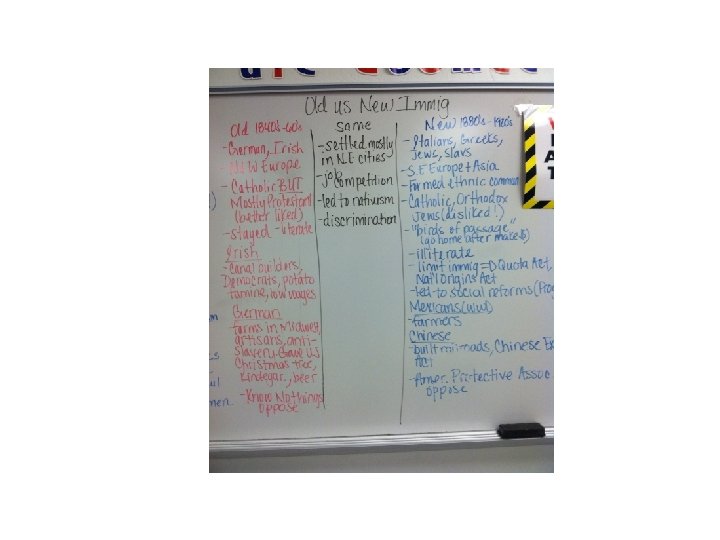 Old vs New Immig
Old 1840's-60's
-German, Irish
W Europe
-Catholic BUT
Mostly Protestant
(better liked)
-stayed -literate
Irish
-canal builders,
Democrats, potato
famine, low wages
German
-farms in Midwest,
artisans, anti-
slavery. Gave US
Christmas tree,
kindegar., beer
-Know Nothings
oppose
same
-settled mostly
in NE cities
-job competition
-led to nativism
-discrimination
New 1880's-1920's
-Italians, Greeks,
Jews, Slavs
-S.E Europe + Asia
-Formed ethnic commun
-Catholic, Orthodox
Jews (disliked!)
-"birds of passage"
(go home after make $)
-illiterate
-limit immig => Quota Act,
Nat'l Origins Act
-led to social reforms (Prog
Mexicans (WWI)
-farmers
Chinese
-built railroads, Chinese Ex
Act
-Amer. Protective Assoc.
oppose